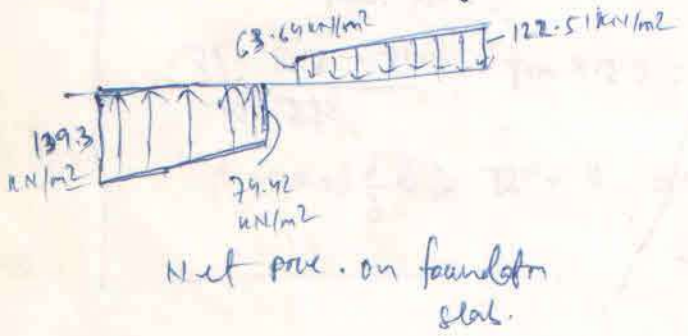 63.64 kN/m2
122.51 kN/m2
139.3
kN/m2
74.42
kN/m2
Net on foundatn
slab.